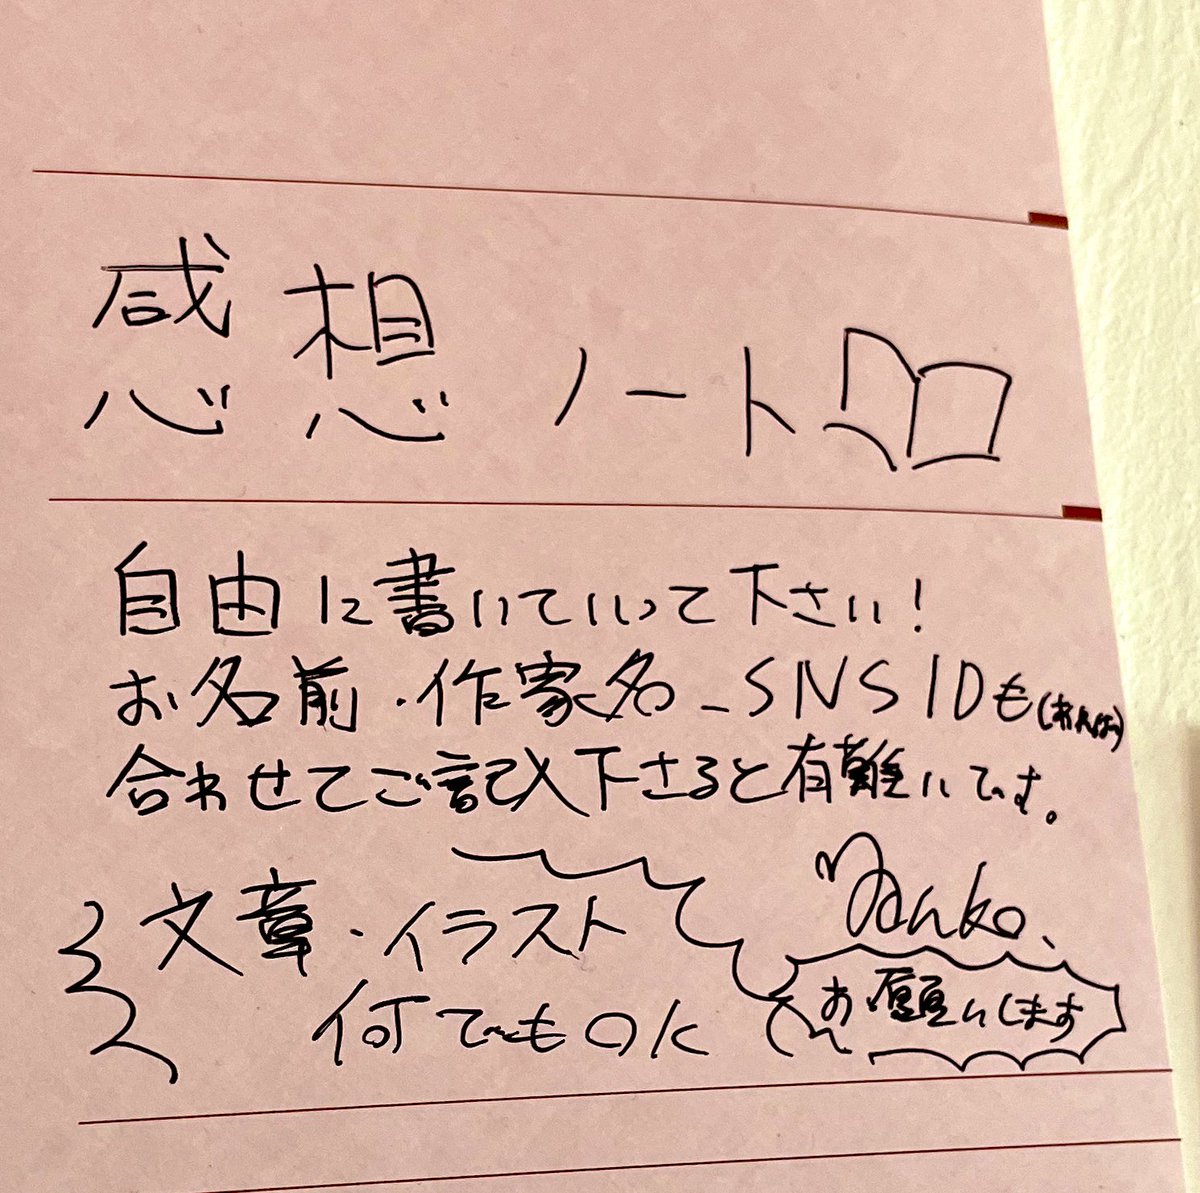 感想ノート
自由に書いていって下さい!
お名前・作家名_SNSIDも(あれば)
合わせてご記入下さると有難いです。
文章・イラスト
何でもOK
Yanko.
お願いします